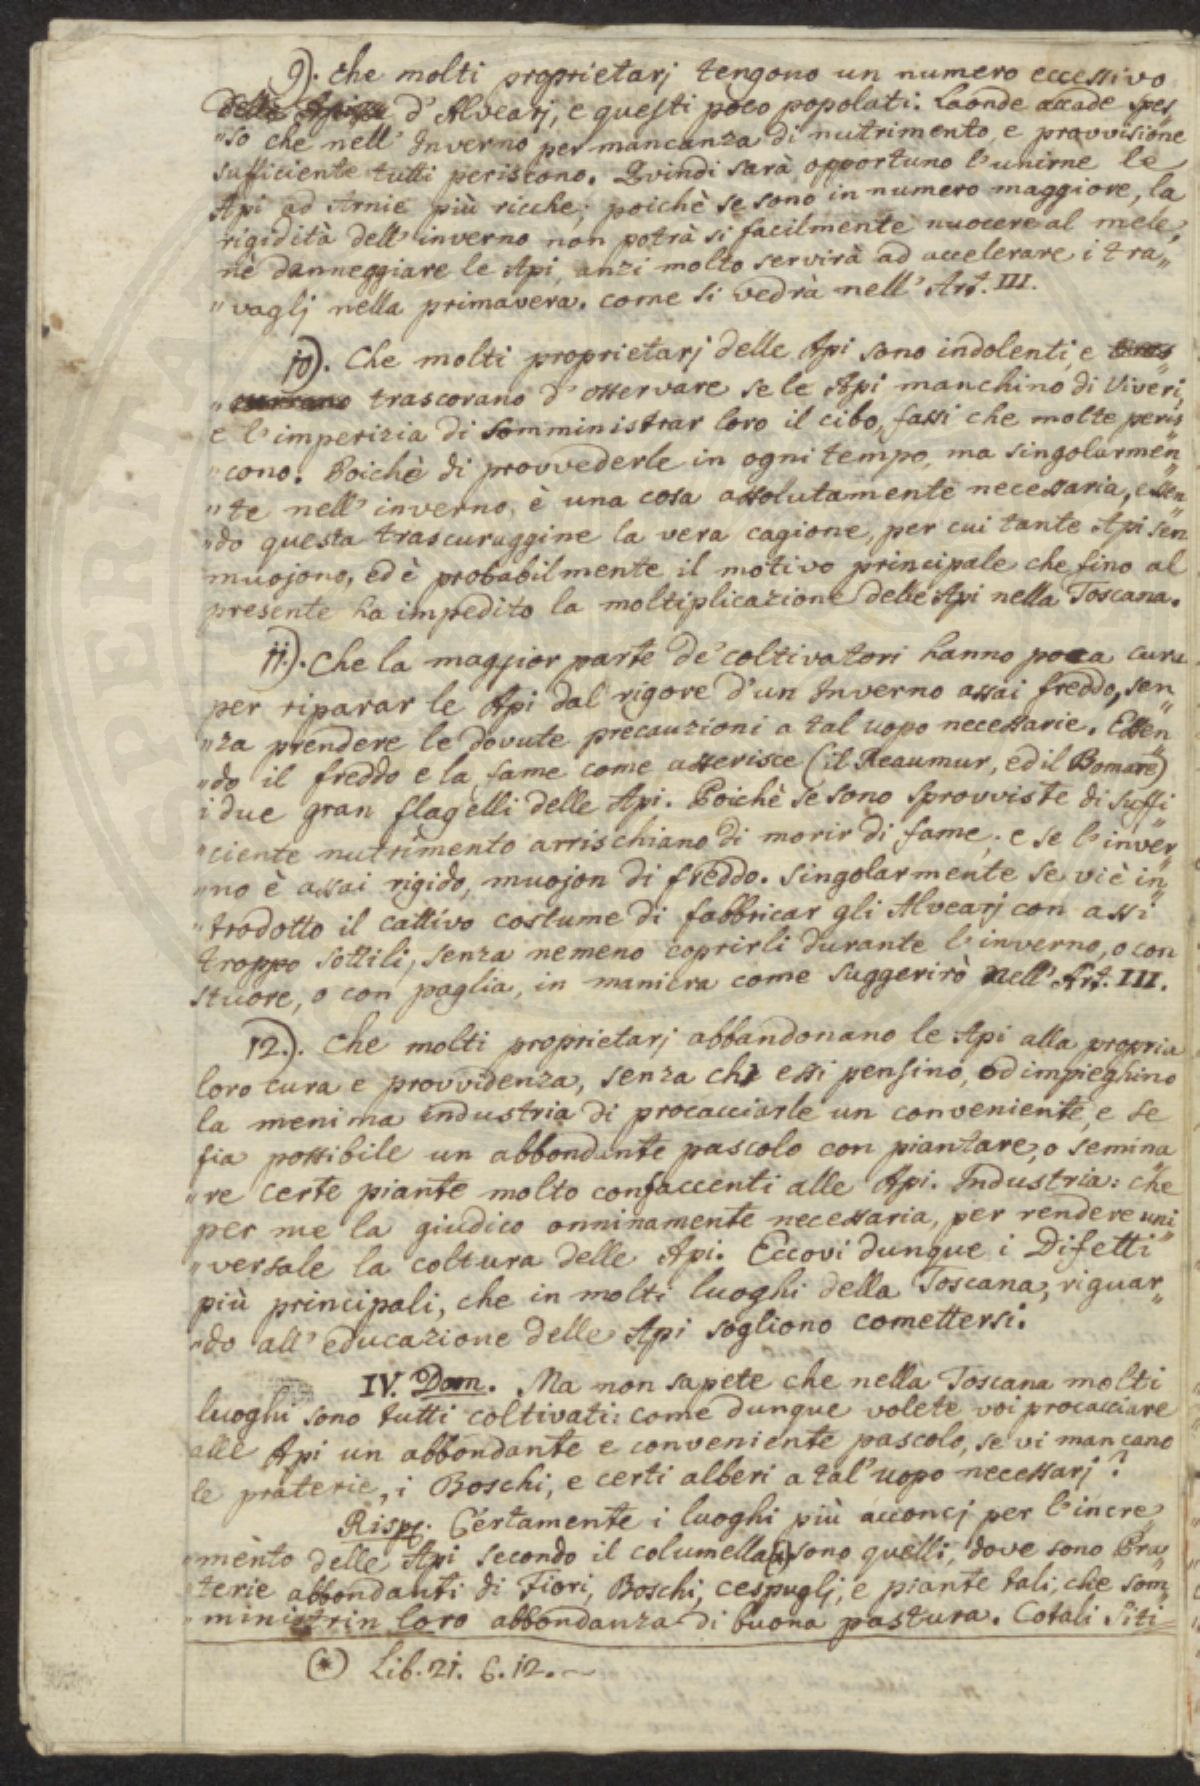 9). Che molti proprietarj tengono un numero eccessivo
delle d'Alvearj, e questi poco popolati: Laonde accade spes
"so che nell'Inverno per mancanza di nutrimento, e provvisione
sufficiente tutti periscono. Quindi sarà opportuno l'unirne le
Api ad Arnie più ricche; poichè se sono in numero maggiore, la
rigidità dell'inverno non potrà si facilmente nuocere al mele,
nè danneggiare le Api, anzi molto servirà ad accelerare i tra"
"vaglj nella primavera. come si vedrà nell'Art. III.
10). Che molti proprietarj delle Api sono indolenti, e
" trascorano d'osservare se le Api manchino di Viveri,
e l'imperizia di somministrar loro il cibo, fassi che molte peris
"cono. Poichè di provvederle in ogni tempo, ma singolarmen"
"te nell'inverno, è una cosa assolutamente necessaria, essen"
"do questa trascuraggine la vera cagione, per cui tante Api sen
muojono, ed è probabilmente il motivo principale che fino al
presente ha impedito la moltiplicazione delle Api nella Toscana.
11.). Che la maggior parte de' coltivatori hanno poca cura
per riparar le Api dal rigore d'un Inverno assai freddo, sen"
"za prendere le dovute precauzioni a tal uopo necessarie. Essen"
"do il freddo e la fame come asserisce (il Reaumur, ed il Bomare)
i due gran flagelli delle Api. Poichè se sono sprovviste di suffi"
"ciente nutrimento arrischiano di morir di fame; e se l'inver"
"no è assai rigido, muojon di freddo. Singolarmente se vi è in"
"trodotto il cattivo costume di fabbricar gli Alvearj con assi
troppo sottili, senza nemeno coprirli durante l'inverno, o con
stuore, o con paglia, in maniera come suggerirò nell'Art. III.
12.). Che molti proprietarj abbandonano le Api alla propria
loro cura e provvidenza, senza che essi pensino, od impieghino
la menima industria di procacciarle un conveniente, e se
fia possibile un abbondante pascolo con piantare, o semina"
"re certe piante molto confaccenti alle Api. Industria: che
per me la giudico onninamente necessaria, per rendere uni"
"versale la coltura delle Api. Eccovi dunque i Difetti
più principali, che in molti luoghi della Toscana, riguar"
"do all'educazione delle Api sogliono comettersi.
IV. Dom. Ma non sapete che nella Toscana molti
luoghi sono tutti coltivati: come dunque volete voi procacciare
alle Api un abbondante e conveniente pascolo, se vi mancano
le praterie, i Boschi, e certi alberi a tal'uopo necessarj?
Risp. Certamente i luoghi più acconcj per l'incre"
"mento delle Api secondo il columella(*) sono quelli, dove sono Pra"
"terie abbondanti di Fiori, Boschi, cespuglj, e piante tali, che som"
"ministrin loro abbondanza di buona pastura. Cotali Siti=
(*) Lib. 21. C. 12. ~